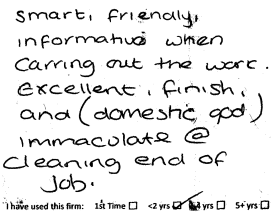 Smart, friendly,
informative when
Carring out the work.
Excellent, finish,
and (domestic god)
immaculate @
Cleaning end of
Job.
I have used this firm: 1st Time ☐ <2 yrs ☑ yrs ☐ 5+ yrs ☐